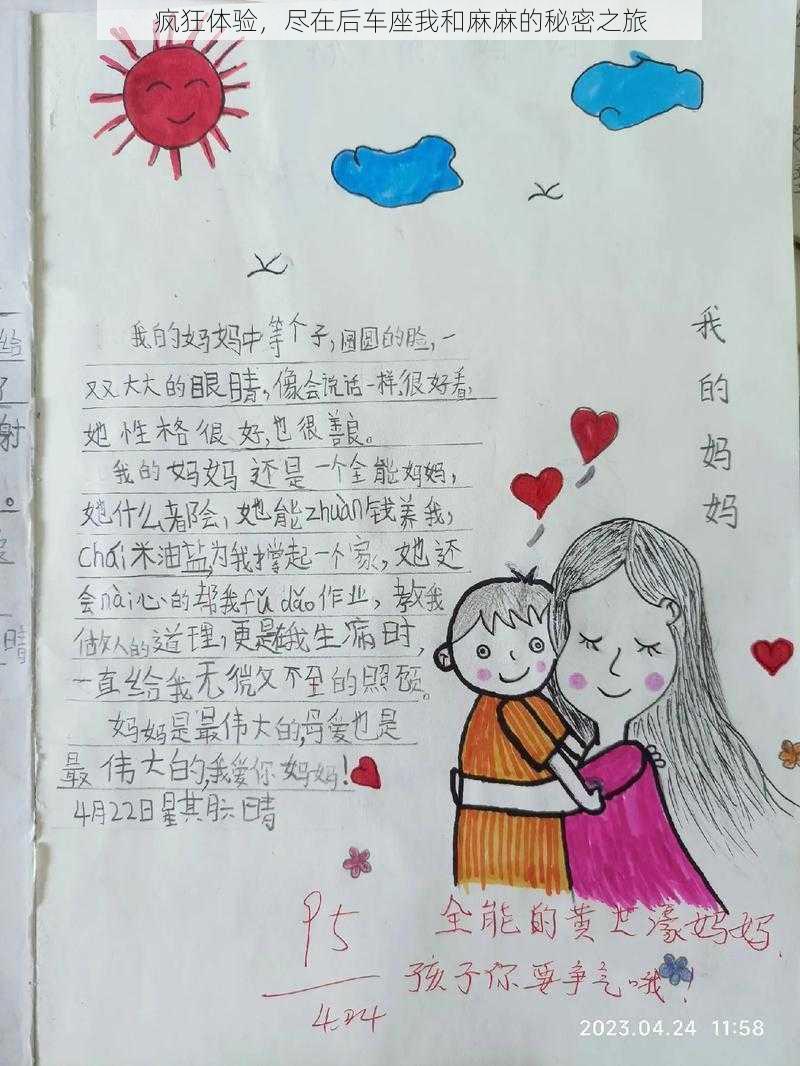 疯狂体验，尽在后车座我和麻麻的秘密之旅
我的妈妈
我的妈妈中等个子，圆圆的脸，一
双又大大的眼睛，像会说话一样，很好看，
她性格很好，也很善良。
我的妈妈还是一个全能妈妈，
她什么都会，她能zhuàn钱养我，
chái米油盐，为我撑起一个家，她还
会nài心的帮我fǔ dǎo作业，教我
做人的道理，更是在我生病时，
一直给我无微又不至的照顾。
妈妈是最伟大的，母爱也是
最伟大的，我爱你妈妈！
4月22日星其六晴
95
4.24
全能的黄世濠妈妈，
孩子你要争气哦！
给
了
射
。
晴
2023.04.24 11:58